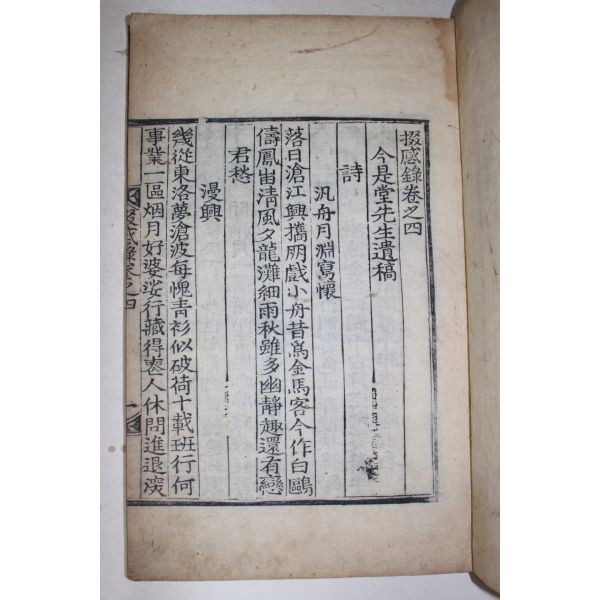 掇感錄卷之四
今是堂先生遺稿
詩
汎舟月淵寫懷
落日滄江興攜朋戲小舟昔爲金馬客今作白鷗
儔鳳峀清風夕龍灘細雨秋雖多幽靜趣還有戀
君愁
漫興
幾從東洛夢滄波每愧青衫似破荷十載班行何
事業一區烟月好婆娑行藏得喪人休問進退深
掇感錄卷之四
一